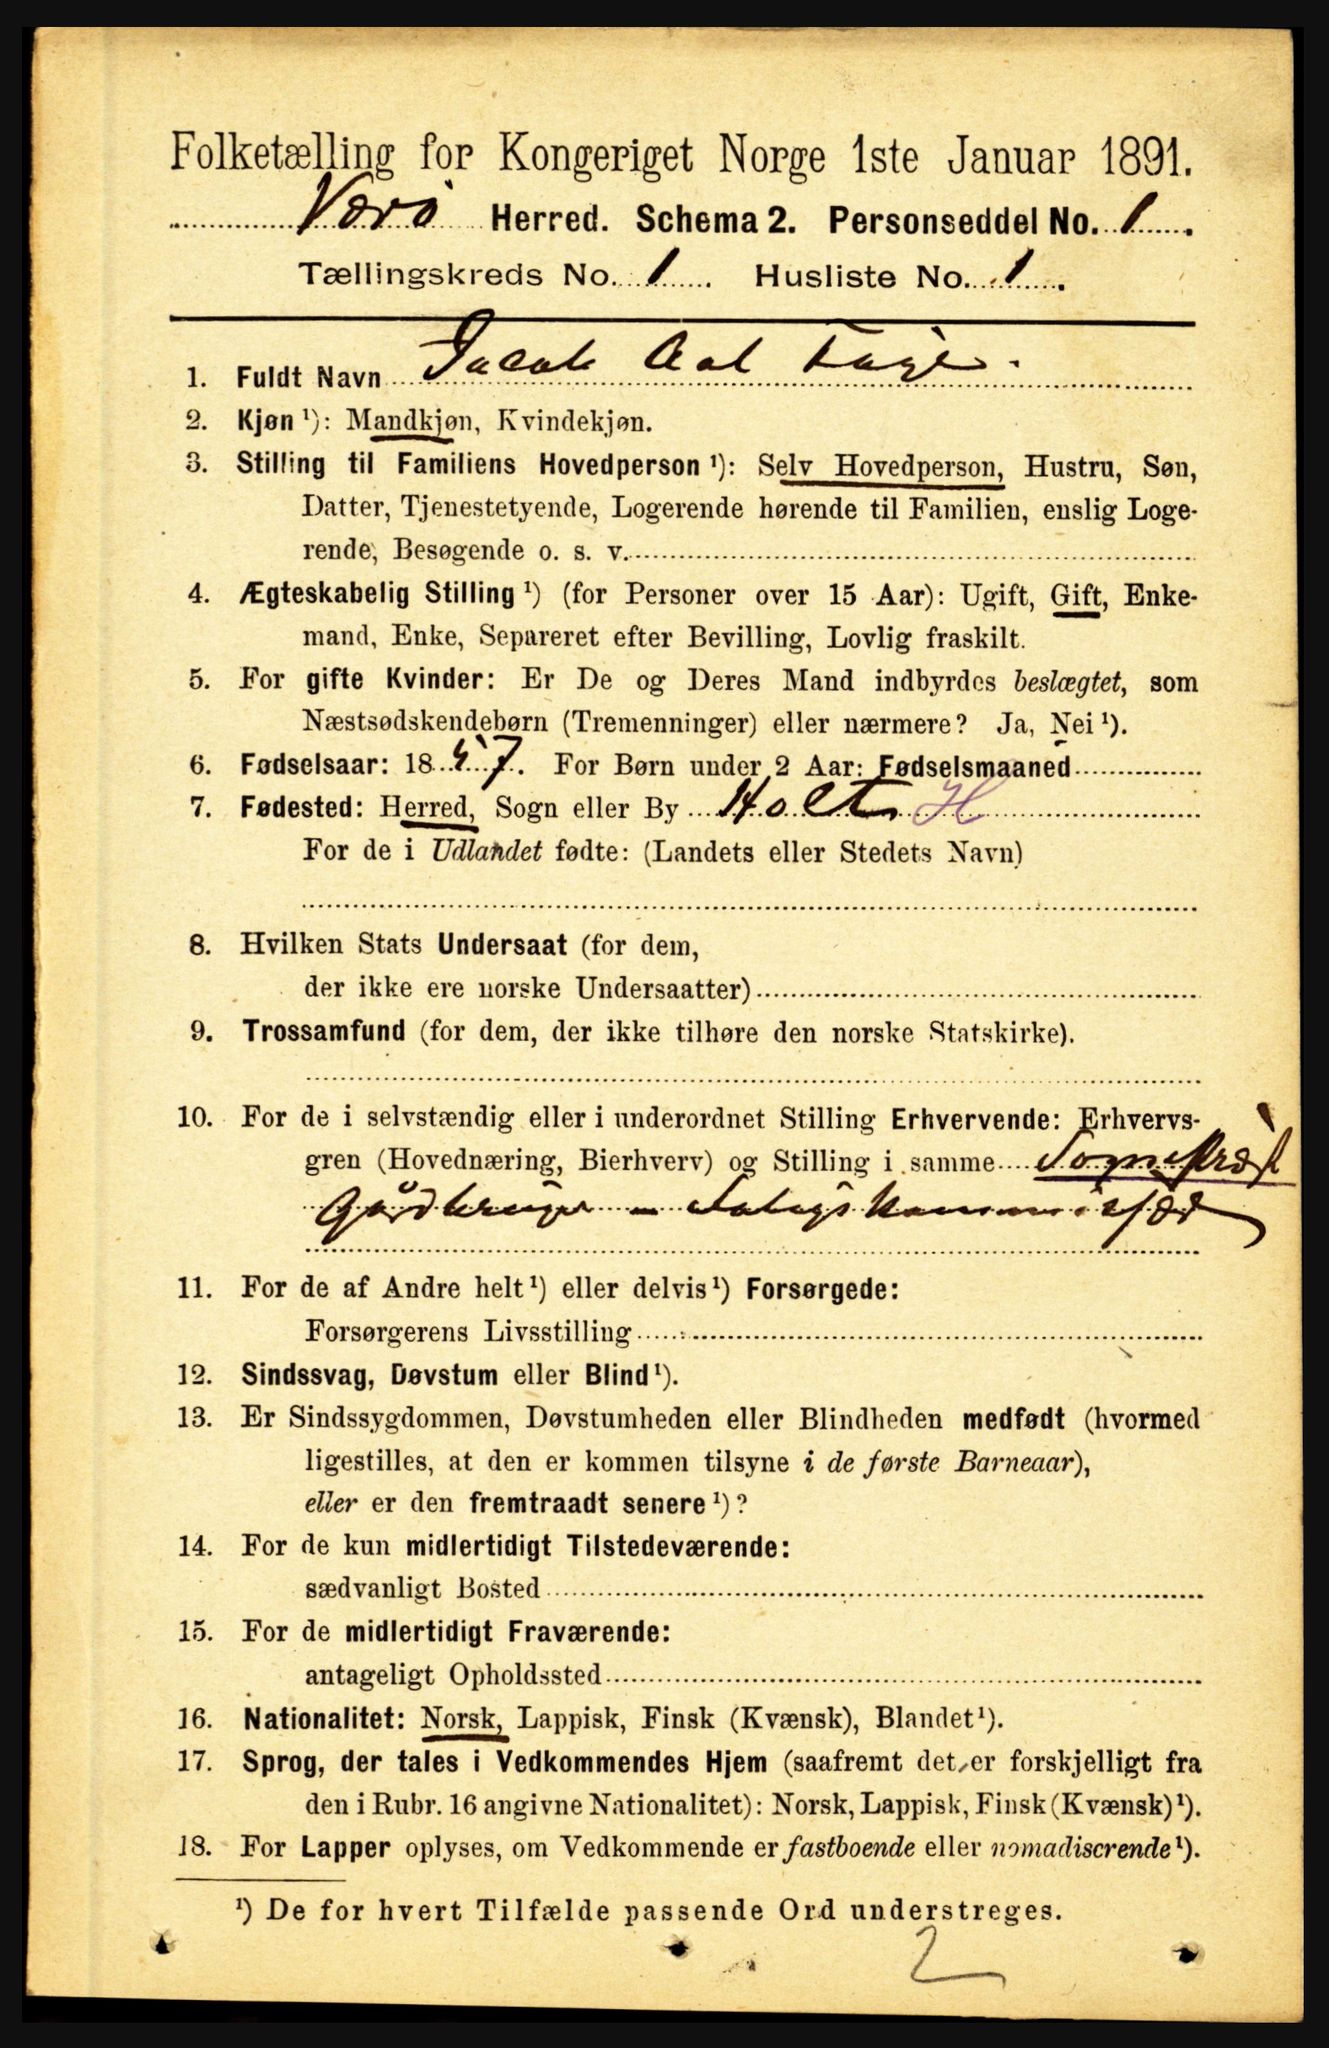 Folketælling for Kongeriget Norge 1ste Januar 1891.
Værö Herred. Schema 2. Personseddel No. 1.
Tællingskreds No. 1. Husliste No. 1.
1. Fuldt Navn Jacob Aal
2. Kjøn ¹): Mandkjøn, Kvindekjøn.
3. Stilling til Familiens Hovedperson ¹): Selv Hovedperson, Hustru, Søn,
Datter, Tjenestetyende, Logerende hørende til Familien, enslig Loge-
rende, Besøgende o. s. v.
4. Ægteskabelig Stilling ¹) (for Personer over 15 Aar): Ugift, Gift, Enke-
mand, Enke, Separeret efter Bevilling, Lovlig fraskilt.
5. For gifte Kvinder: Er De og Deres Mand indbyrdes beslægtet, som
Næstsødskendebørn (Tremenninger) eller nærmere? Ja, Nei ¹).
6. Fødselsaar: 1857. For Børn under 2 Aar: Fødselsmaaned
7. Fødested: Herred, Sogn eller By Holt H
For de i Udlandet fødte: (Landets eller Stedets Navn)
8. Hvilken Stats Undersaat (for dem,
der ikke ere norske Undersaatter)
9. Trossamfund (for dem, der ikke tilhøre den norske Statskirke).
10. For de i selvstændig eller i underordnet Stilling Erhvervende: Erhvervs-
gren (Hovednæring, Bierhverv) og Stilling i samme Sognepræst
Gårdbruger
11. For de af Andre helt ¹) eller delvis ¹) Forsørgede:
Forsørgerens Livsstilling
12. Sindssvag, Døvstum eller Blind ¹).
13. Er Sindssygdommen, Døvstumheden eller Blindheden medfødt (hvormed
ligestilles, at den er kommen tilsyne i de første Barneaar),
eller er den fremtraadt senere ¹)?
14. For de kun midlertidigt Tilstedeværende:
sædvanligt Bosted
15. For de midlertidigt Fraværende:
antageligt Opholdssted
16. Nationalitet: Norsk, Lappisk, Finsk (Kvænsk), Blandet ¹).
17. Sprog, der tales i Vedkommendes Hjem (saafremt det er forskjelligt fra
den i Rubr. 16 angivne Nationalitet): Norsk, Lappisk, Finsk (Kvænsk) ¹).
18. For Lapper oplyses, om Vedkommende er fastboende eller nomadiserende ¹).
¹) De for hvert Tilfælde passende Ord understreges.
2